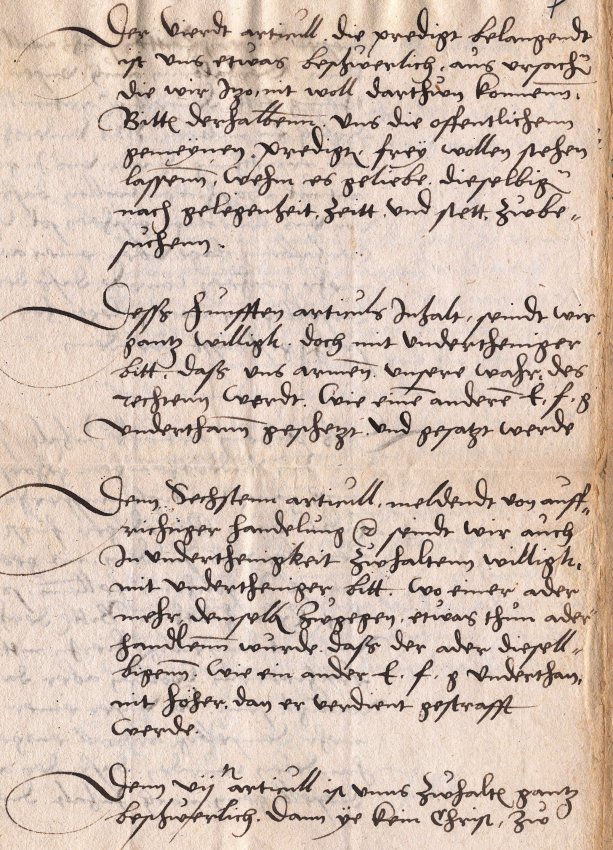 Der vierdt articull. die predigt belangendt
ist uns etwas beschwerlich. aus ursachn
die wir Itzo nit woll darthun konnenn.
Bitten derhalbenn. uns die offentlichenn
gemeynen. predigt. frey wollen stehen
lassenn. wehm es geliebe. dieselbign
nach gelegenheit. Zeitt. und stett. Zwbe-
suchenn.
Desss funfften articuls Inhalt. seindt wir
gantz willigk. doch mit undertheniger
bitt. dass uns armen. unsere wahr. des
rechtenn werdt. Wie eine anderen E. f. g
underthann geschetzt. und gesatzt werde
Dem Sechstenn articull. meldendt von auff-
richtiger handelung seindt wir auch
In underthenigkeit Zwhaltenn willigk.
mit undertheniger bitt. wo einer ader
mehr. demselben Zugegen. etwas thun ader
handlenn wurde. dass der ader diesell-
bigenn. wie ein ander E. f. g underthan.
nit hoher. dan er verdient gestrafft
werde.
Denn vijn articull ist unns Zwhalten gantz
beschwerlich. Dann ye kein Christ. Zw